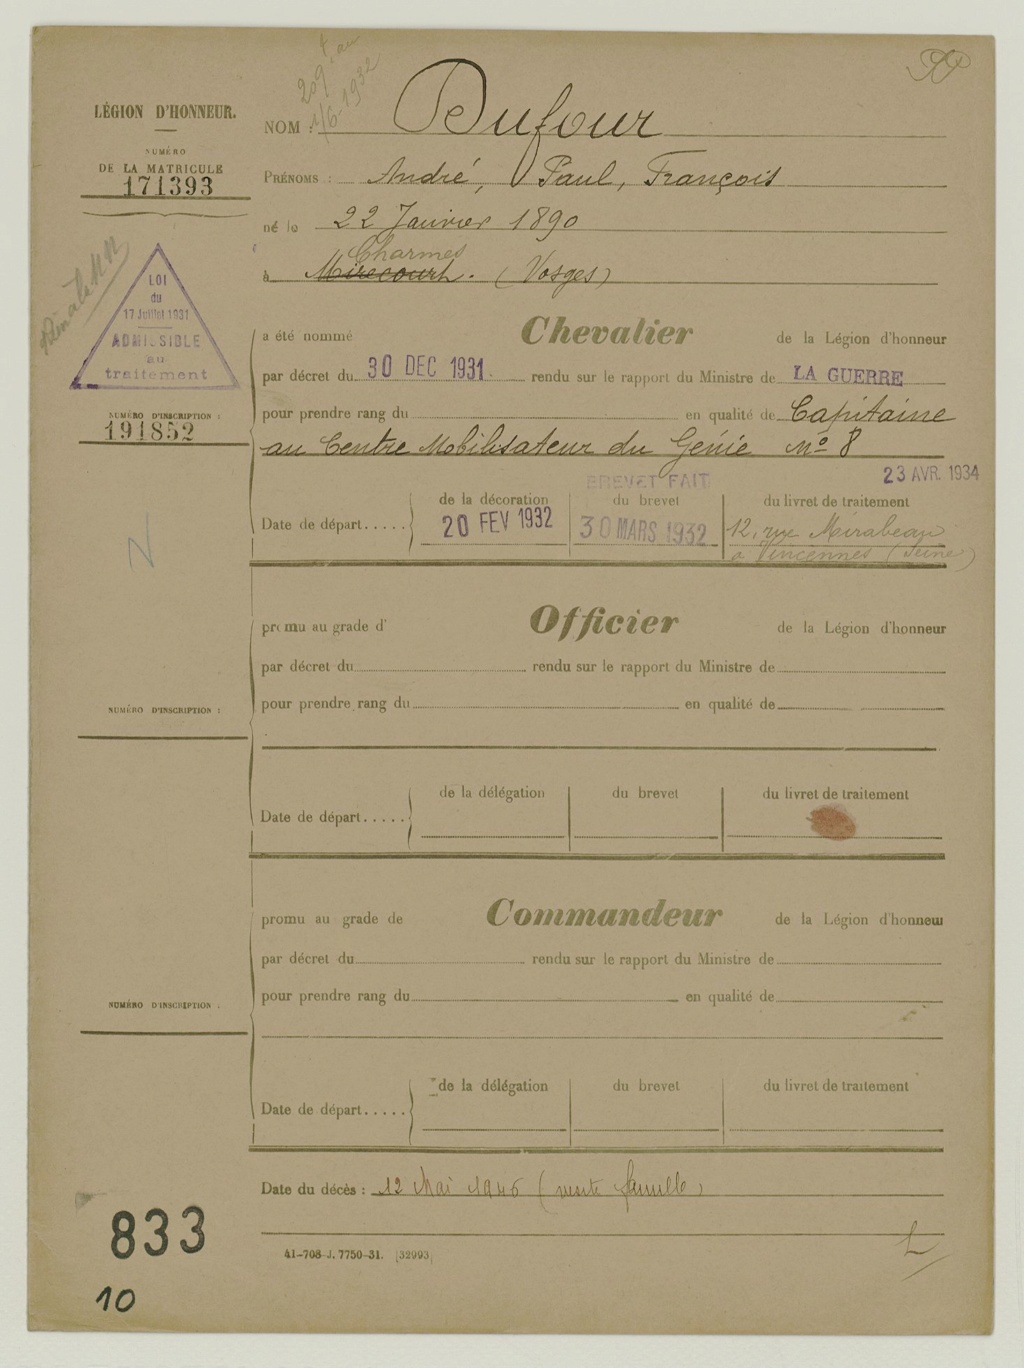 LÉGION D'HONNEUR.
NUMÉRO
DE LA MATRICULE
171393
1/6-1932
NOM : Dufour
PRÉNOMS : André, Paul, François
né le 22 Janvier 1890
Charmes
à Mirecourt. (Vosges)
LOI
du
17 Juillet 1931
ADMISSIBLE
au
traitement
NUMÉRO D'INSCRIPTION :
191852
a été nommé Chevalier de la Légion d'honneur
par décret du 30 DEC 1931. rendu sur le rapport du Ministre de LA GUERRE
pour prendre rang du en qualité de Capitaine
au Centre Mobilisateur du Génie No 8
BREVET FAIT 23 AVR. 1934
de la décoration du brevet du livret de traitement
Date de départ..... 20 FEV 1932 30 MARS 1932 12, rue Mirabeau
à Vincennes (Seine)
N
promu au grade d' Officier de la Légion d'honneur
par décret du rendu sur le rapport du Ministre de
pour prendre rang du en qualité de
NUMÉRO D'INSCRIPTION :
de la délégation du brevet du livret de traitement
Date de départ.....
promu au grade de Commandeur de la Légion d'honneur
par décret du rendu sur le rapport du Ministre de
pour prendre rang du en qualité de
NUMÉRO D'INSCRIPTION :
de la délégation du brevet du livret de traitement
Date de départ.....
Date du décès : 12 Mai 1946 (visite famille)
833
10
41-708-J. 7750-31. [32993]